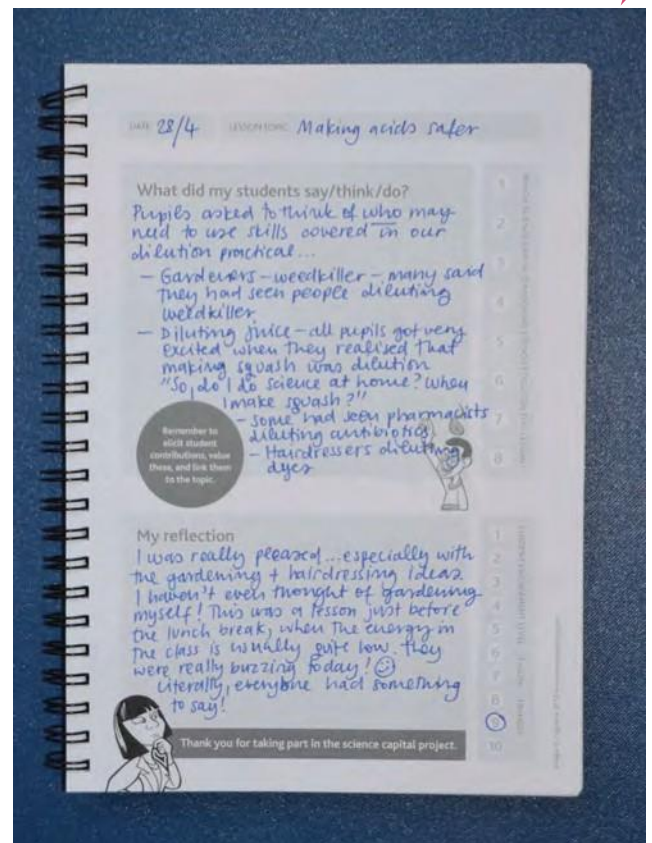 DATE 28/4 LESSON TOPIC Making acids safer
What did my students say/think/do?
Pupils asked to think of who may
need to use skills covered in our
dilution practical...
– Gardeners – weedkiller – many said
they had seen people diluting
weedkiller
– Diluting juice – all pupils got very
excited when they realised that
making squash was dilution
"So, do I do science at home? When
I make squash?"
– Some had seen pharmacists
diluting antibiotics
– Hairdressers diluting
dyes
Remember to
elicit student
contributions, value
these, and link them
to the topic.
1
2
3
4
5
6
7
8
My reflection
I was really pleased... especially with
the gardening + hairdressing ideas.
I haven't even thought of gardening
myself! This was a lesson just before
the lunch break, when the energy in
the class is usually quite low. They
were really buzzing today! ☺
Literally, everyone had something
to say!
1
2
3
4
5
6
7
8
9
10
Thank you for taking part in the science capital project.